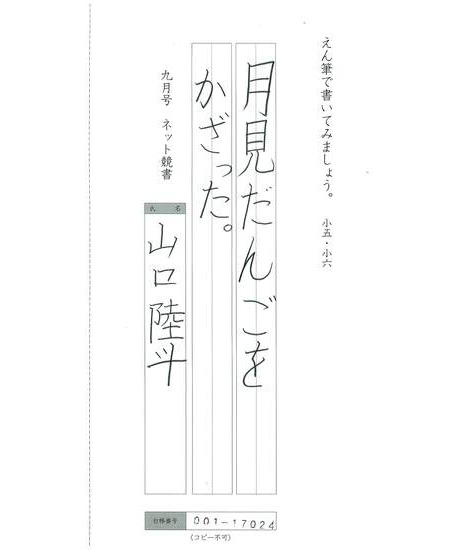 えん筆で書いてみましょう。 小五・小六
月見だんごを
かざった。
九月号 ネット競書
氏名
山口陸斗
台帳番号 001-17024
(コピー不可)